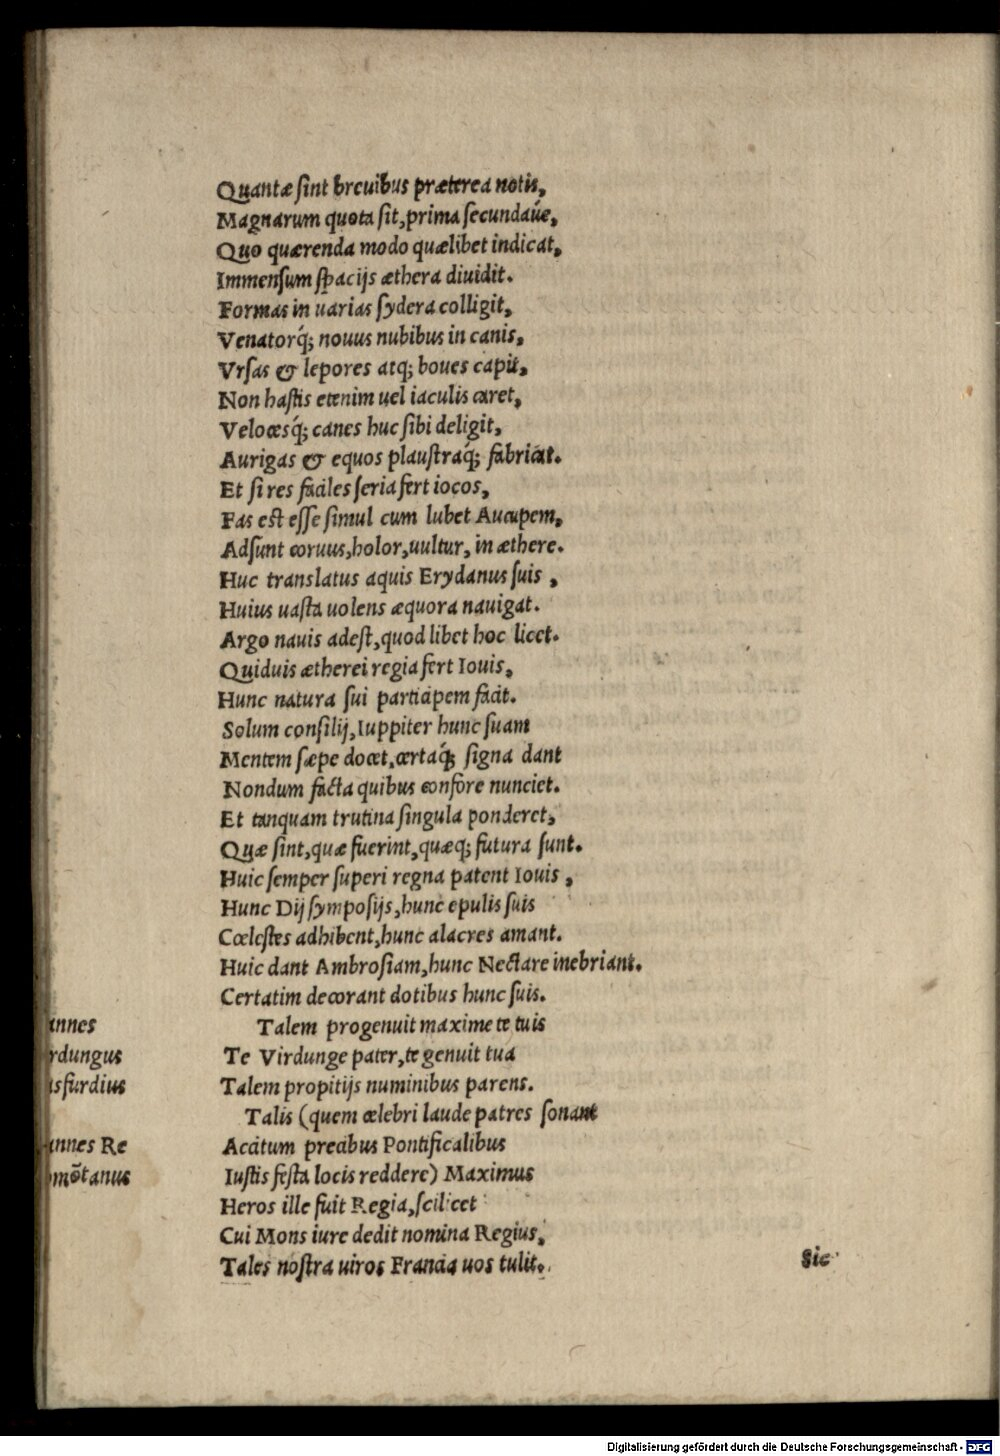 Quantæ sint breuibus præterea notis,
Magnarum quota sit, prima secundaúe,
Quo quærenda modo quælibet indicat,
Immensum spacijs æthera diuidit.
Formas in uarias sydera colligit,
Venatorq́; nouus nubibus in canis,
Vrsas & lepores atq; boues capit,
Non hastis etenim uel iaculis caret,
Velocesq́; canes huc sibi deligit,
Aurigas & equos plaustraq́; fabricat.
Et si res faciles seria fert iocos,
Fas est esse simul cum lubet Aucupem,
Adsunt coruus, holor, uultur, in æthere.
Huc translatus aquis Erydanus suis,
Huius uasta uolens æquora nauigat.
Argo nauis adest, quod libet hoc licet.
Quiduis ætherei regia fert Iouis,
Hunc natura sui participem facit.
Solum consilij, Iuppiter hunc suam
Mentem sæpe docet, certaq́; signa dant
Nondum facta quibus confore nunciet.
Et tanquam trutina singula ponderet,
Quæ sint, quæ fuerint, quæq; futura sunt.
Huic semper superi regna patent Iouis,
Hunc Dij symposijs, hunc epulis suis
Cœlestes adhibent, hunc alacres amant.
Huic dant Ambrosiam, hunc Nectare inebriant.
Certatim decorant dotibus hunc suis.
annes
rdungus
sfurdius
Talem progenuit maxime te tuis
Te Virdunge pater, te genuit tua
Talem propitijs numinibus parens.
Talis (quem celebri laude patres sonant
annes Re
mõtanus
Acitum precibus Pontificalibus
Iustis festa locis reddere) Maximus
Heros ille fuit Regia, scilicet
Cui Mons iure dedit nomina Regius,
Tales nostra uiros Francia uos tulit.
Sic
Digitalisierung gefördert durch die Deutsche Forschungsgemeinschaft - DFG